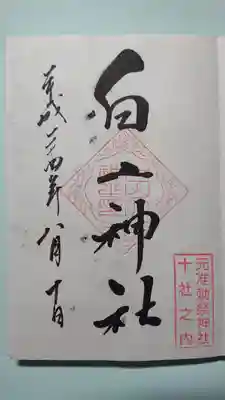 元准勅祭神社
十社之内
白山神社
平成二四年八月十日